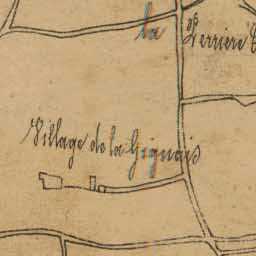 la
Derrière
Village de la Gignais